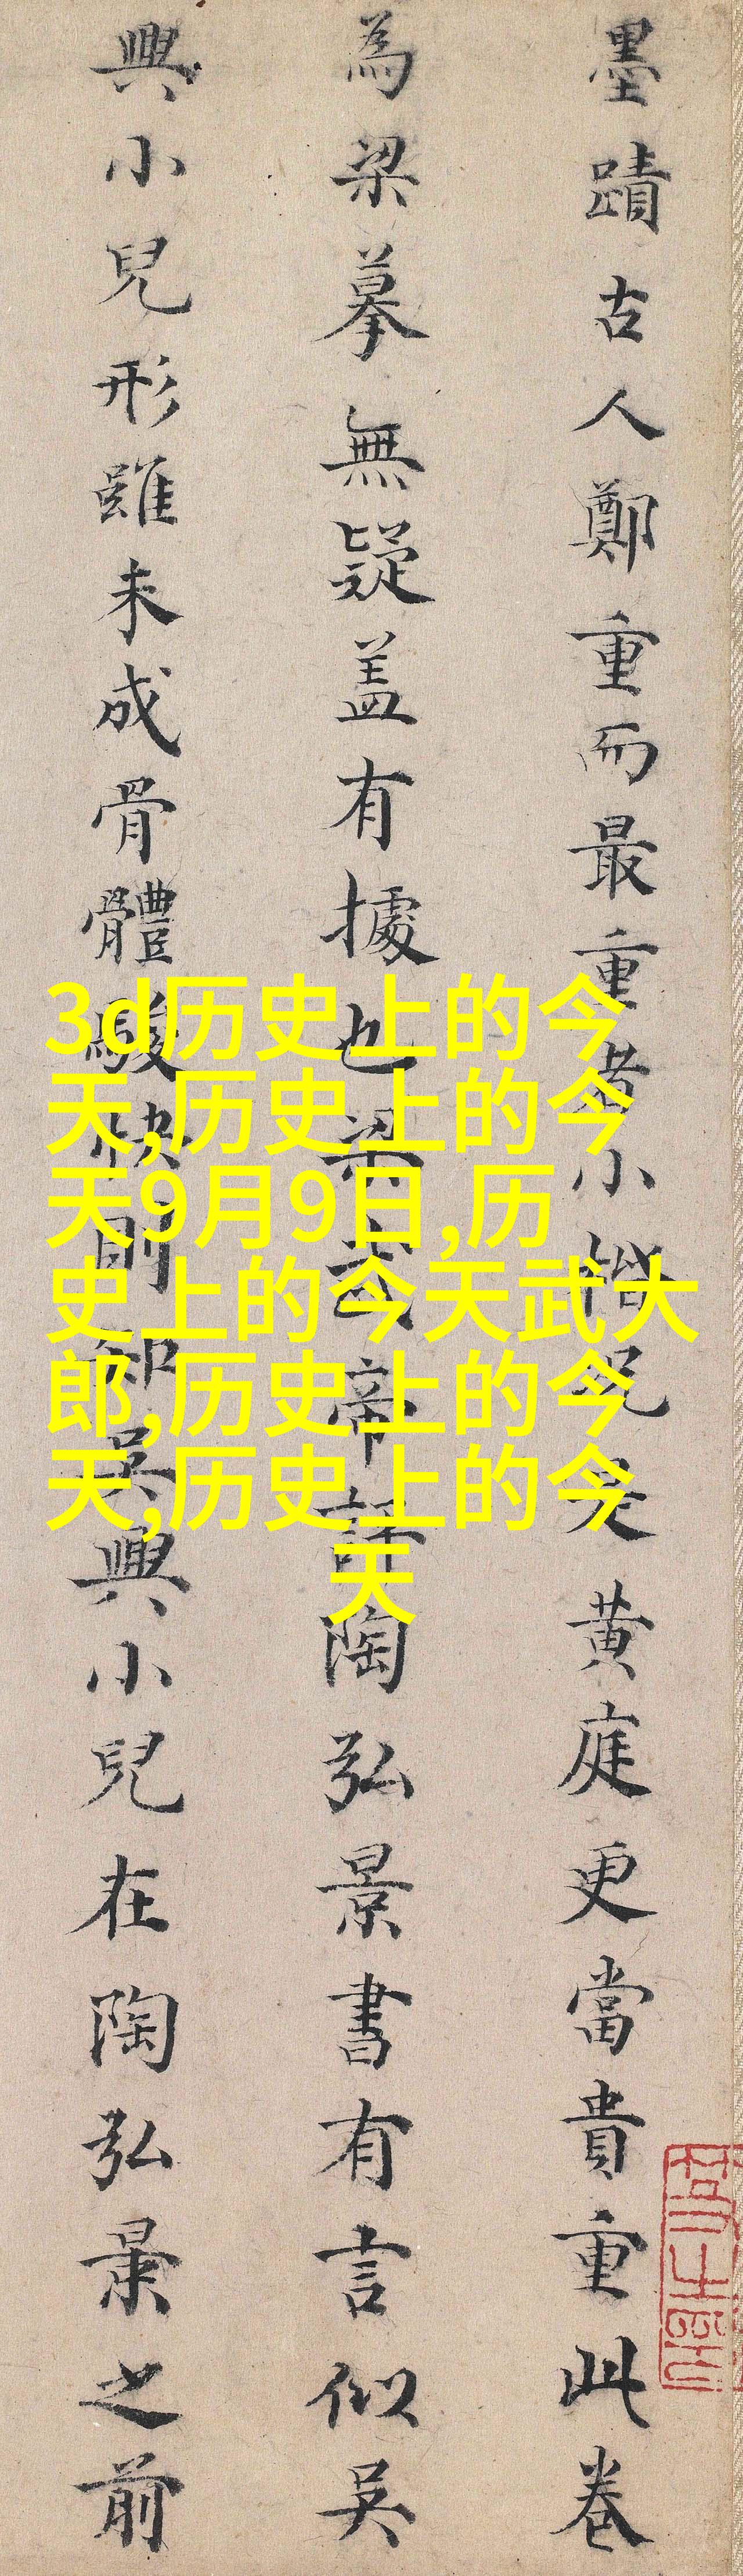 墨蹟古人鄭重而最重者小楷况是黄庭更當貴重此卷
為梁摹無疑蓋有據也梁武帝語陶弘景書有言似吴
興小兒形雖未成骨體駿快則知吴興小兒在陶弘景之前
3d历史上的今
天,历史上的今
天9月9日,历
史上的今天武大
郎,历史上的今
天,历史上的今
天